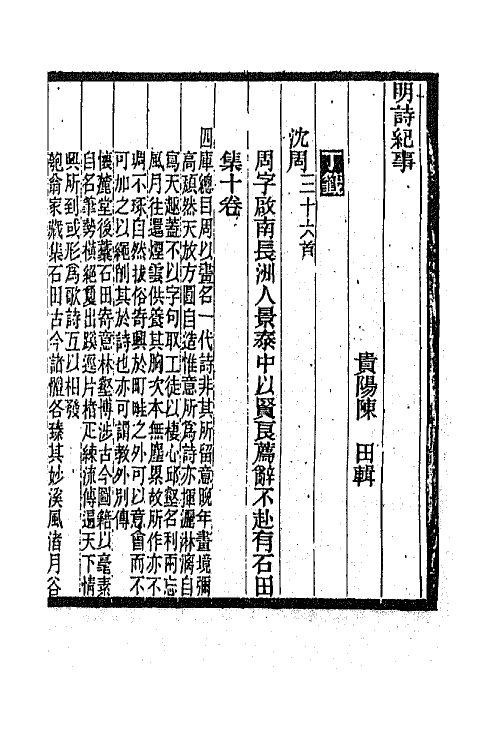 明詩紀事
貴陽陳　田輯
丁籤
沈周三十六首
周字啟南長洲人景泰中以賢良薦辭不赴有石田
集十卷
四庫總目周以畫名一代詩非其所留意晚年畫境彌
高頹然天放方圓自造惟意所為詩亦揮灑淋漓自
寫天趣蓋不以字句取工徒以棲心邱壑名利兩忘
風月往還煙雲供養其胸次本無塵累故所作亦不
琱不琢自然拔俗寄興於町畦之外可以意會而不
可加之以繩削其於詩也亦可謂教外別傳
懷麓堂後藁石田寄意林壑博涉古今圖籍以毫素
自名筆勢橫絕夐出蹊逕片楮疋練流傳遍天下情
興所到或形為歌詩互以相發
匏翁家藏集石田古今諸體各臻其妙溪風渚月谷